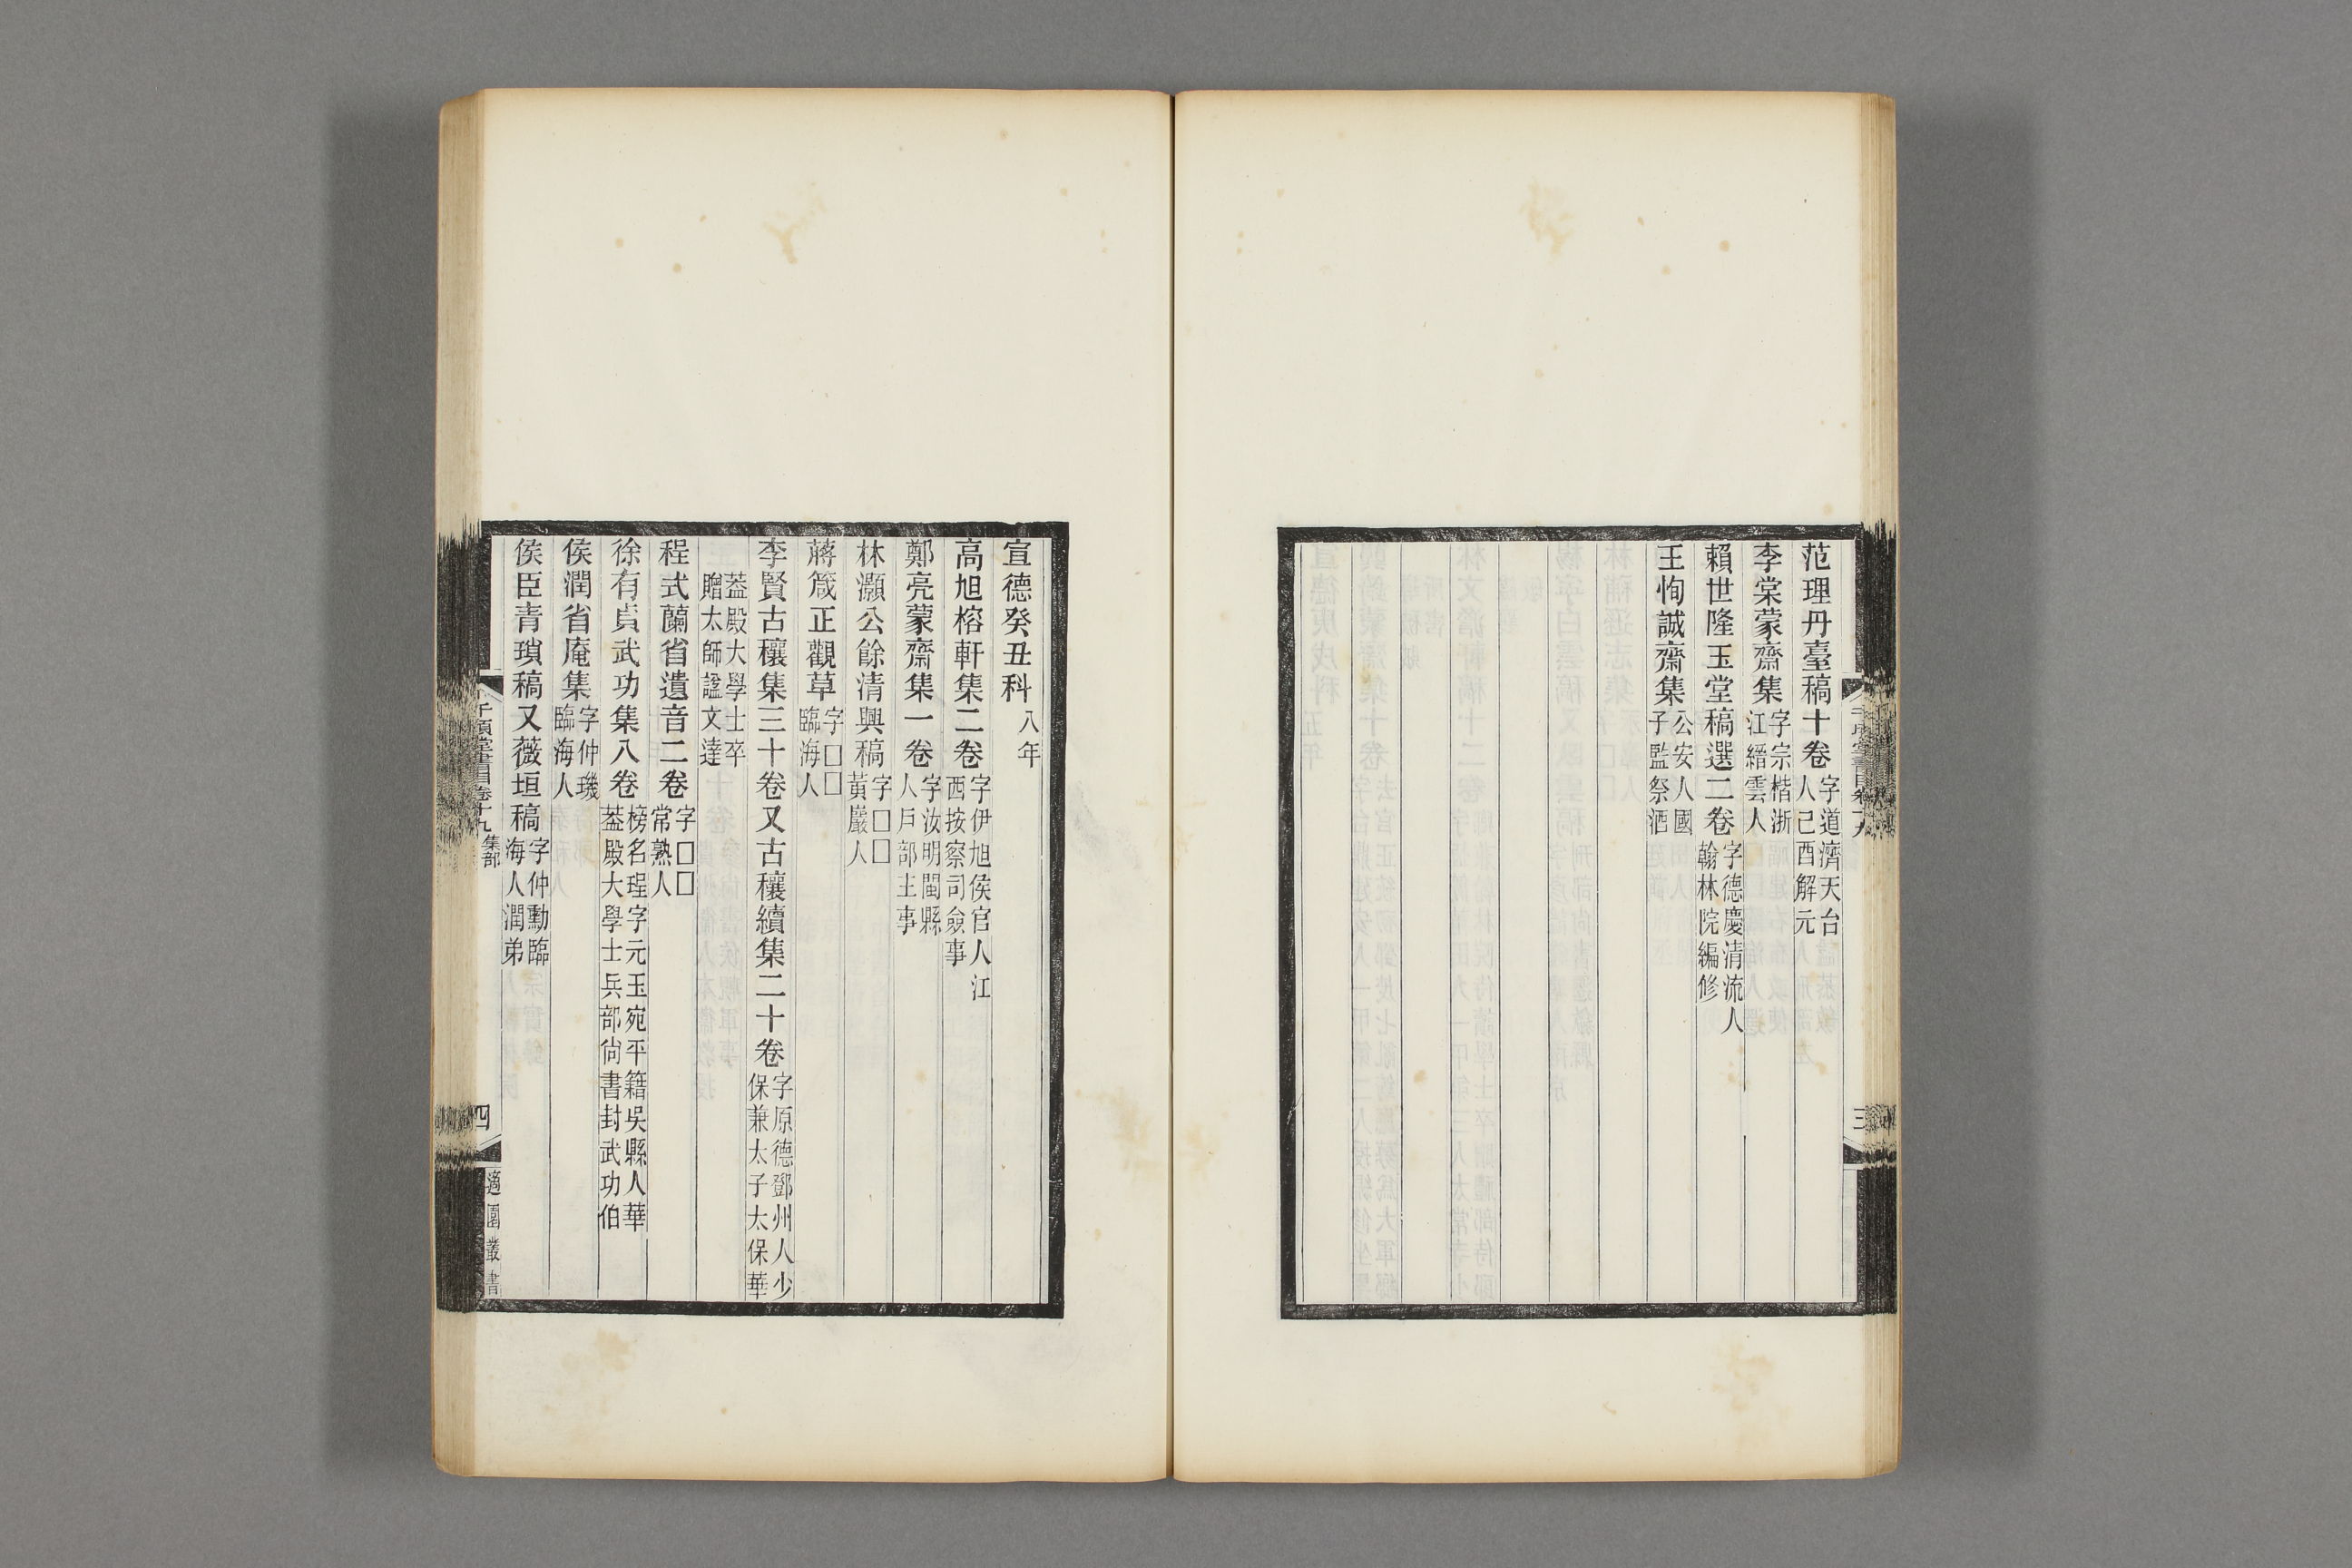 范理丹臺稿十卷 字道濟天台人己酉解元
李棠蒙齋集 字宗楷浙江縉雲人
賴世隆玉堂稿選二卷 字德慶清流人翰林院編修
王恂誠齋集 公安人國子監祭酒
三
宣德癸丑科 八年
高旭榕軒集二卷 字伊旭侯官人江西按察司僉事
鄭亮蒙齋集一卷 字汝明閩縣人戶部主事
林灝公餘清興稿 字□□黃巖人
蔣箴正觀草 字□□臨海人
李賢古穰集三十卷又古穰續集二十卷 字原德鄧州人少保兼太子太保華
葢殿大學士卒贈太師諡文達
程式蘭省遺音二卷 字□□常熟人
徐有貞武功集八卷 榜名珵字元玉宛平籍吳縣人華葢殿大學士兵部尙書封武功伯
侯潤省庵集 字仲璣臨海人
侯臣青瑣稿又薇垣稿 字仲勳臨海人潤弟
千頃堂書目卷十九 集部
四
適園叢書